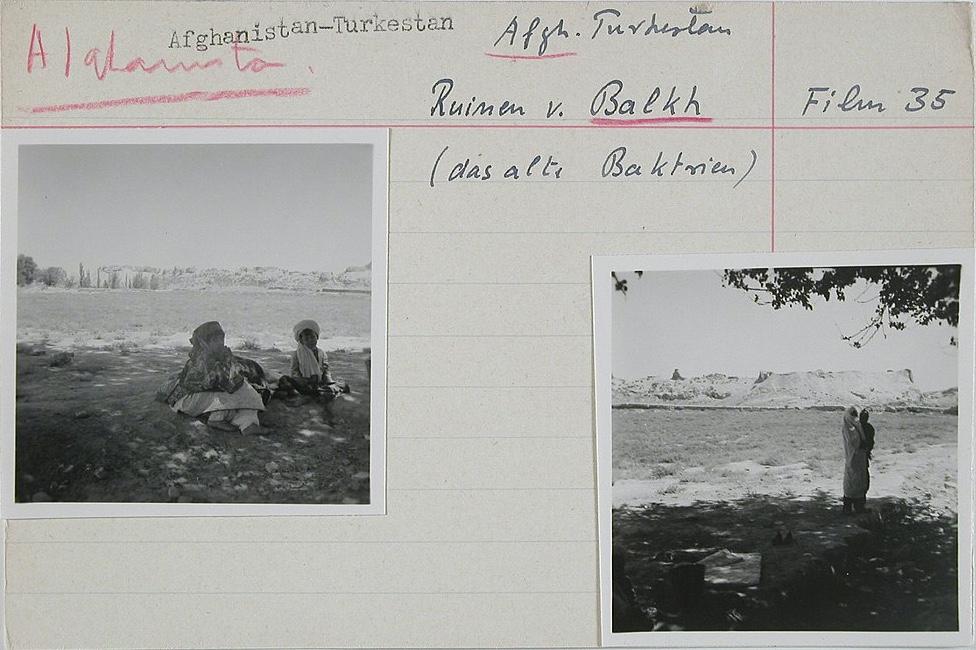 Afghanistan.
Afghanistan-Turkestan
Afgh. Turkestan
Ruinen v. Balkh
Film 35
(das alte Baktrien)